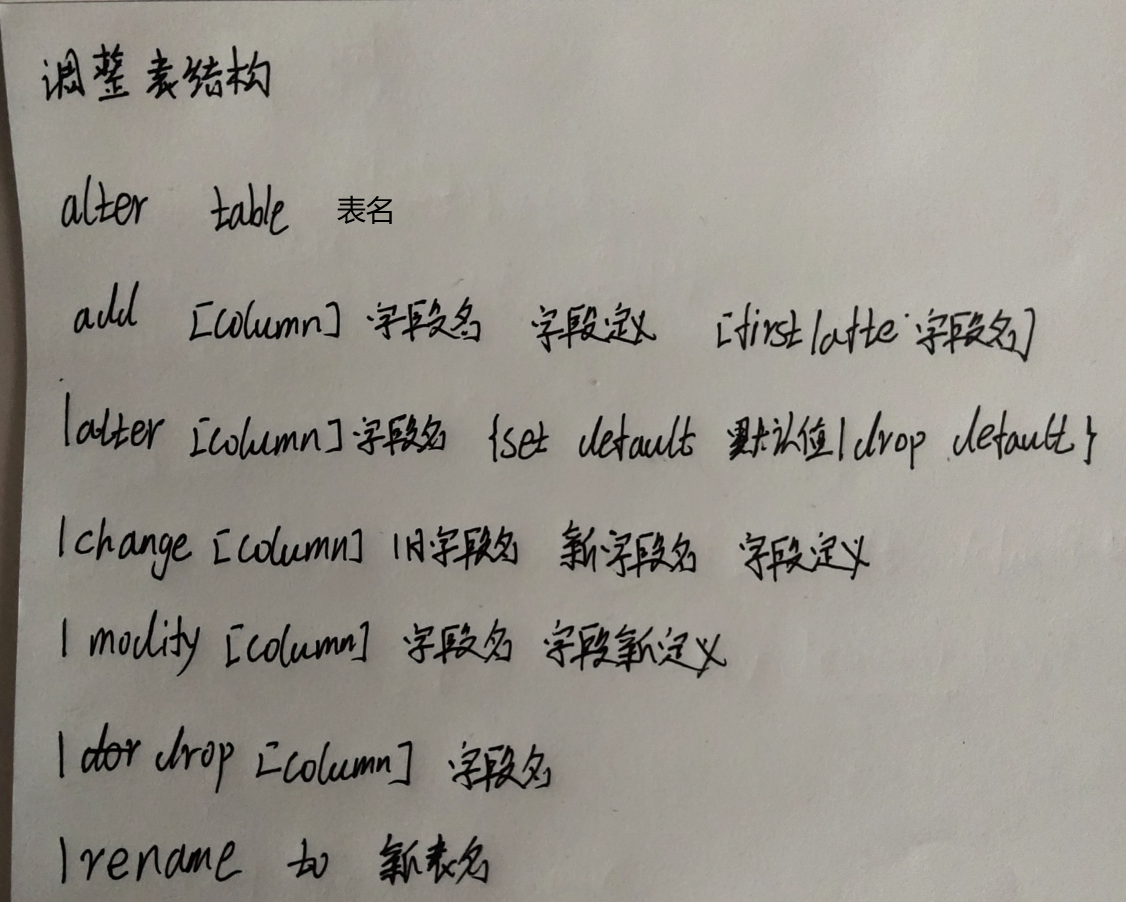 调整表结构
alter table 表名
add [column] 字段名 字段定义 [first|afte 字段名]
|alter [column] 字段名 {set default 默认值|drop default}
|change [column] 旧字段名 新字段名 字段定义
|modify [column] 字段名 字段新定义
|drop [column] 字段名
|rename to 新表名